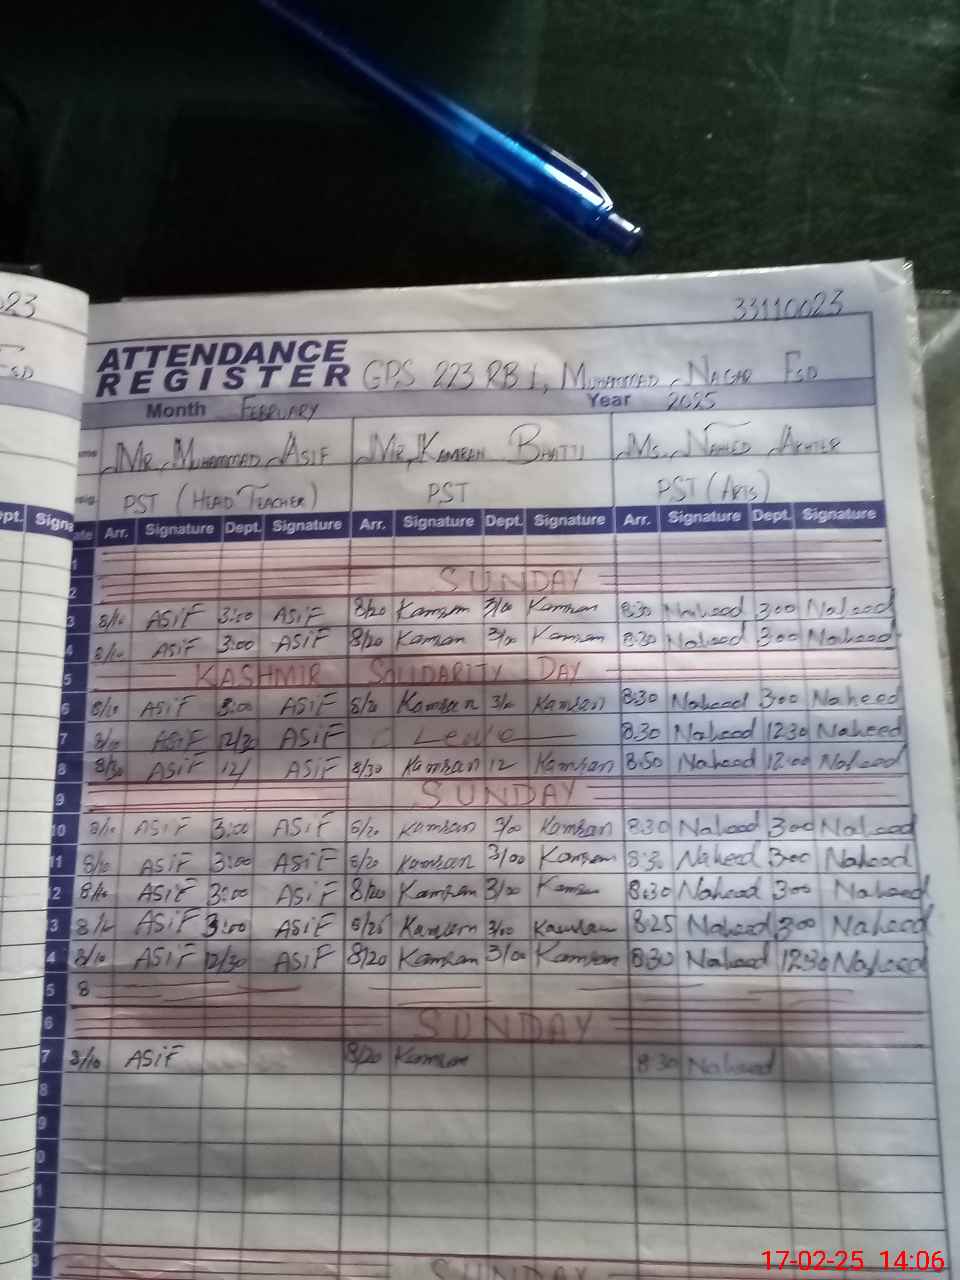 023
33110023
FSD
ATTENDANCE
REGISTER GPS 223 RB I, MUHAMMAD NAGAR FSD
Month FEBRUARY Year 2025
Mr, MUHAMMAD ASIF Mr, KAMRAN BHATTI Ms. NAHEED AKHTER
PST (HEAD TEACHER) PST PST (Arts)
pt. Signa
Arr. Signature Dept. Signature Arr. Signature Dept. Signature Arr. Signature Dept. Signature
1
2 SUNDAY
3 8/10 ASiF 3:00 ASiF 8/20 Kamran 3/00 Kamran 8:30 Naheed 3:00 Naheed
4 8/10 ASiF 3:00 ASiF 8/20 Kamran 3/00 Kamran 8:30 Naheed 3:00 Naheed
5 KASHMIR SOLIDARITY DAY
6 8/10 ASiF 3:00 ASiF 8/20 Kamran 3/00 Kamran 8:30 Naheed 3:00 Naheed
7 8/10 ASiF 12/30 ASiF Leave 8:30 Naheed 12:30 Naheed
8 8/30 ASiF 12/ ASiF 8/30 Kamran 12 Kamran 8:50 Naheed 12:00 Naheed
9 SUNDAY
10 8/10 ASiF 3:00 ASiF 8/20 Kamran 3/00 Kamran 8:30 Naheed 3:00 Naheed
11 8/10 ASiF 3:00 ASiF 8/20 Kamran 3/00 Kamran 8:30 Naheed 3:00 Naheed
2 8/10 ASiF 3:00 ASiF 8/20 Kamran 3/00 Kamran 8:30 Naheed 3:00 Naheed
3 ASiF 3:00 ASiF 8/25 Kamran 3/00 Kamran 8:25 Naheed 3:00 Naheed
4 8/10 ASiF 12/30 ASiF 8/20 Kamran 3/00 Kamran 8:30 Naheed 12:30 Naheed
5 8
6 SUNDAY
7 8/10 ASiF 8/20 Kamran 8:30 Naheed
8
9
0
1
2
3 SUNDAY
17-02-25 14:06